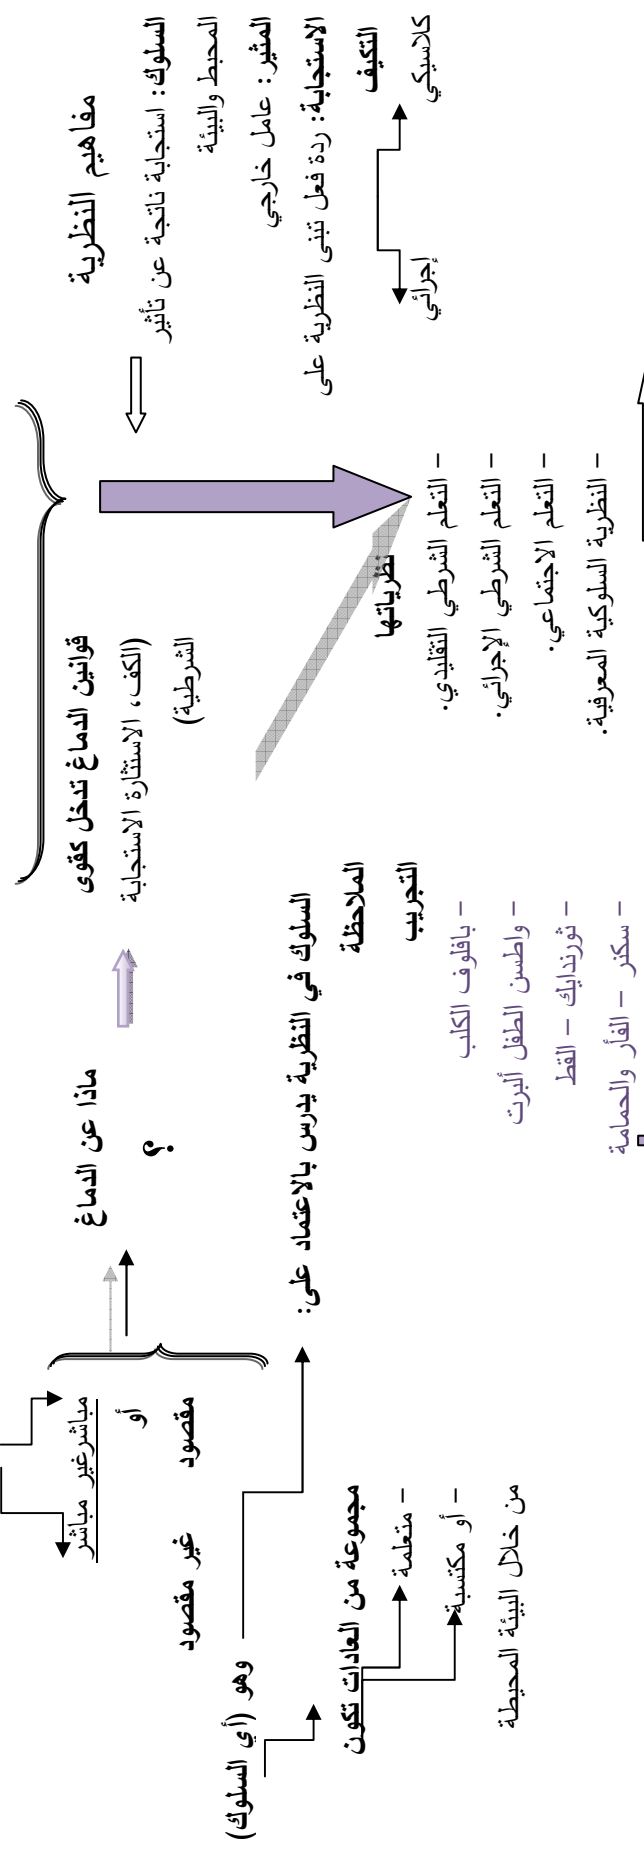 مفاهيم النظرية
السلوك: استجابة ناتجة عن تأثير
المحيط والبيئة
المثير: عامل خارجي
الاستجابة: ردة فعل تبنى النظرية على
التكيف
كلاسيكي
إجرائي
قوانين الدماغ تدخل كقوى
(الكف، الاستثارة الاستجابة
الشرطية)
نظرياتها
- التعلم الشرطي التقليدي.
- التعلم الشرطي الإجرائي.
- التعلم الاجتماعي.
- النظرية السلوكية المعرفية.
ماذا عن الدماغ
؟
السلوك في النظرية يدرس بالاعتماد على:
الملاحظة
التجريب
- بافلوف الكلب
- واطسن الطفل ألبرت
- ثورندايك – القط
- سكنر – الفأر والحمامة
مباشرغير مباشر
أو
مقصود غير مقصود
وهو (أي السلوك)
مجموعة من العادات تكون
- متعلمة
- أو مكتسبة
من خلال البيئة المحيطة